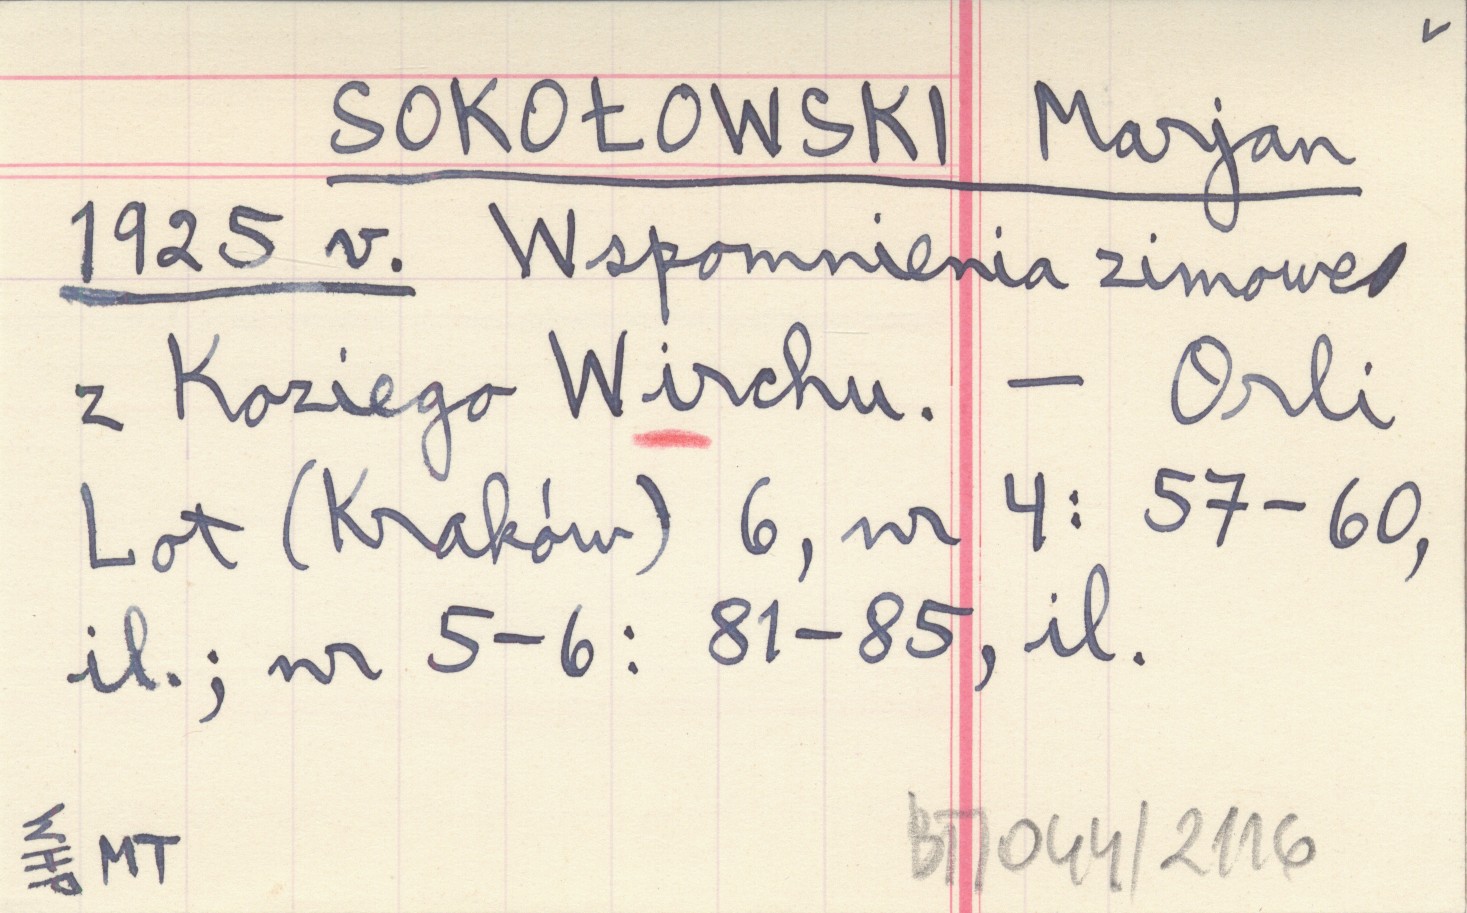 SOKOŁOWSKI Marjan
1925 r. Wspomnienia zimowe
z Koziego Wirchu. — Orli
Lot (Kraków) 6, nr 4: 57-60,
il.; nr 5-6: 81-85, il.
WHP
MT
BT/044/2116